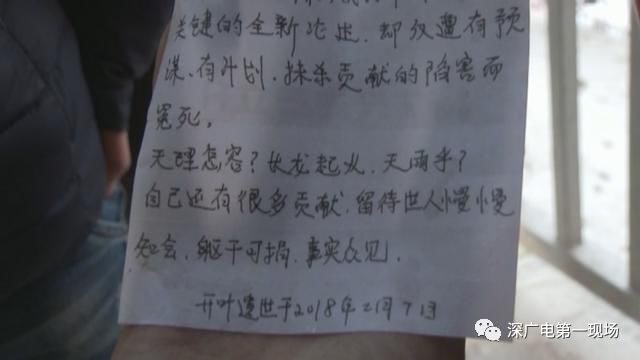 关键的全新论述,却又遭有预
谋、有计划,抹杀贡献的陷害而
冤死。
天理怎容?长龙起火,天雨乎?
自己还有很多贡献,留待世人慢慢
知会,躯干可捐,事实众见.
开叶遗世于2018年2月7日
深广电第一现场